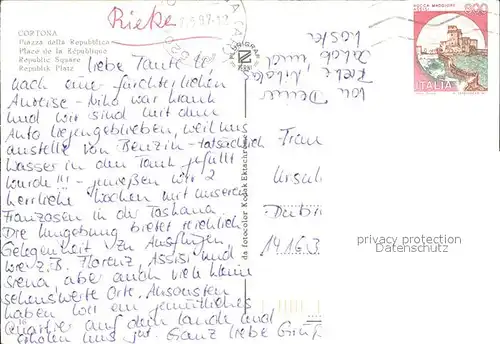 Rieke
CORTONA
Piazza della Repubblica
Place de la République
Republic Square
Republik Platz
liebe Tante
nach einer fürchterlichen
Anreise - Niko war krank
und wir sind mit dem
Auto liegengeblieben, weil uns
anstelle von Benzin - tatsächlich
Wasser in den Tank gefüllt
wurde !!! - genießen wir 2
herrliche Wochen mit unseren
Franzosen in der Toskana.
Die Umgebung bietet reichlich
Gelegenheit zu Ausflügen,
wie z.B. Florenz, Assisi und
Siena, aber auch viele kleine
sehenswerte Orte. Ansonsten
haben wir ein gemütliches
Quartier auf dem Lande und
erholen uns gut. Ganz liebe Grüße
von Deiner
Rieke, Nikola
Jakob und
da fotocolor Kodak Ektachrome
ROCCA MAGGIORE
ASSISI
800
ITALIA
Frau
Ursul
Dubi
1416
privacy protection
Datenschutz